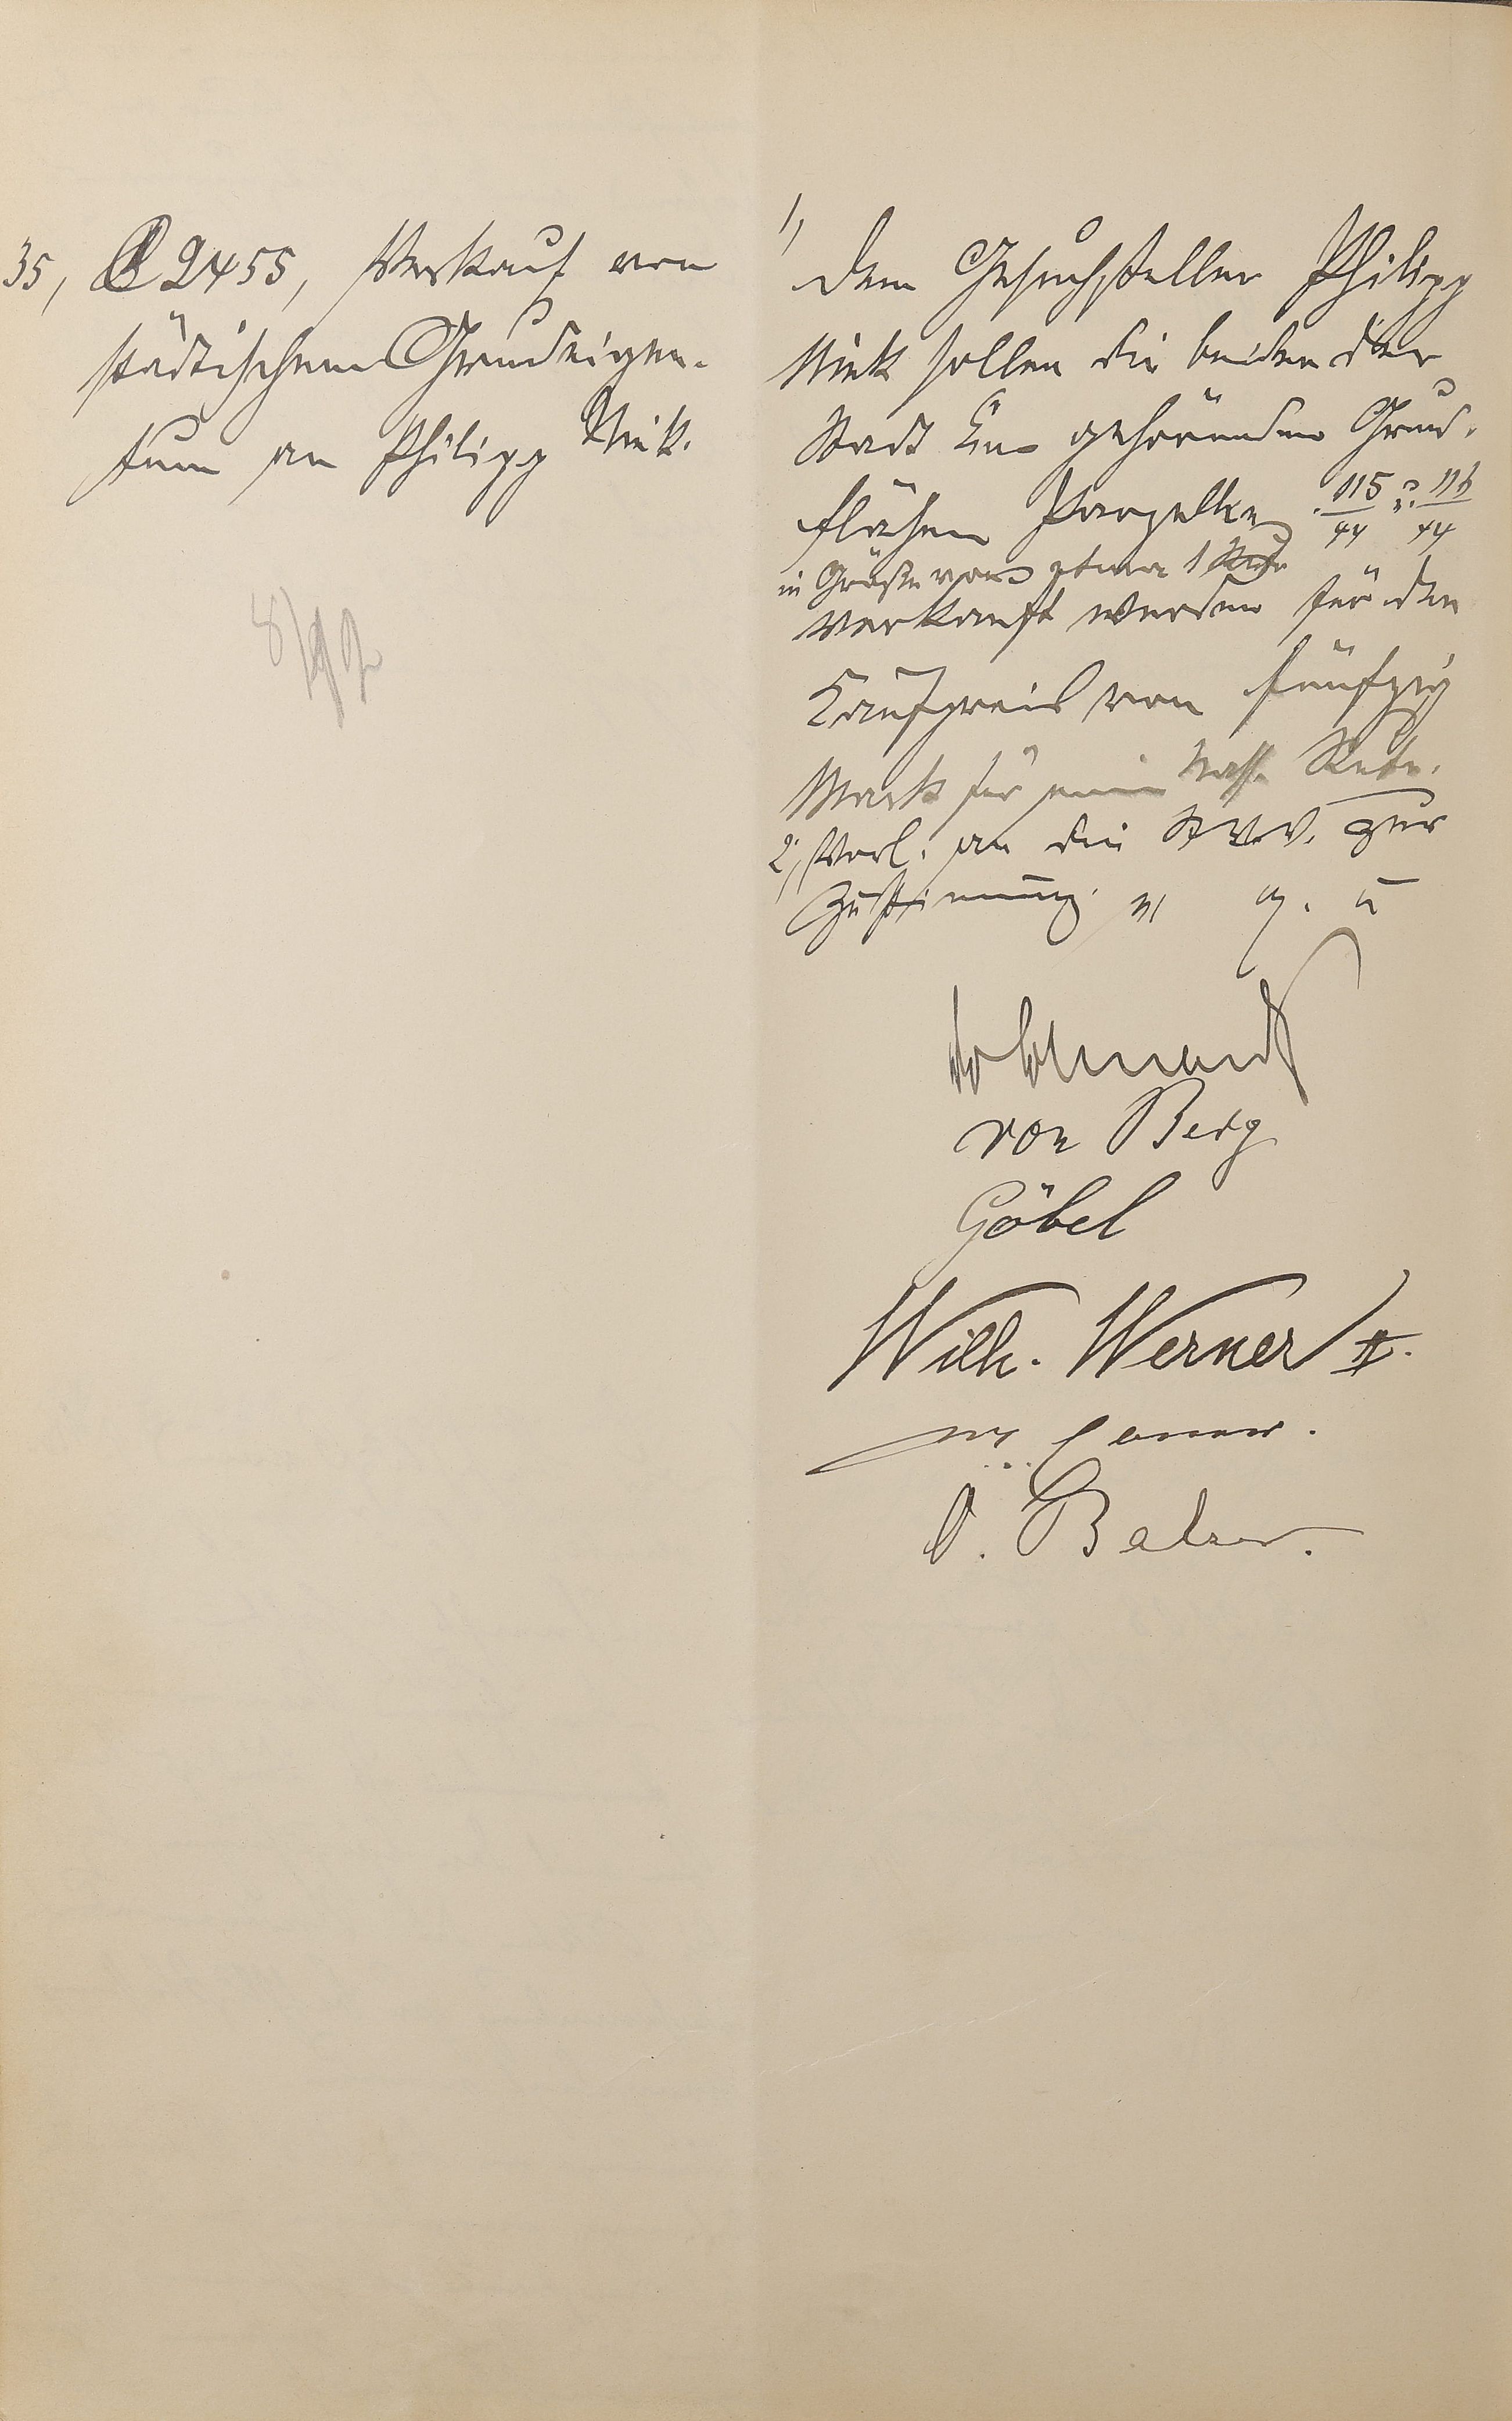 35, B 2455, Verkauf von
städtischem Grundeigen-
tum an Philipp Nink.
1,
Dem Gesuchsteller Philipp
Nink sollen die beiden der
Stadt gehörenden Grund-
flächen Parzellen 115/44 u. 116/44
in Größe von etwa 1 Rute
verkauft werden für den
Kaufpreis von fünfzig
Mark für eine Nass. Rute.
2, Vorl. an die St. V. V. zur
Zustimmung. g. u
von Berg
Göbel
Wilh. Werner II.
O. Balzer.